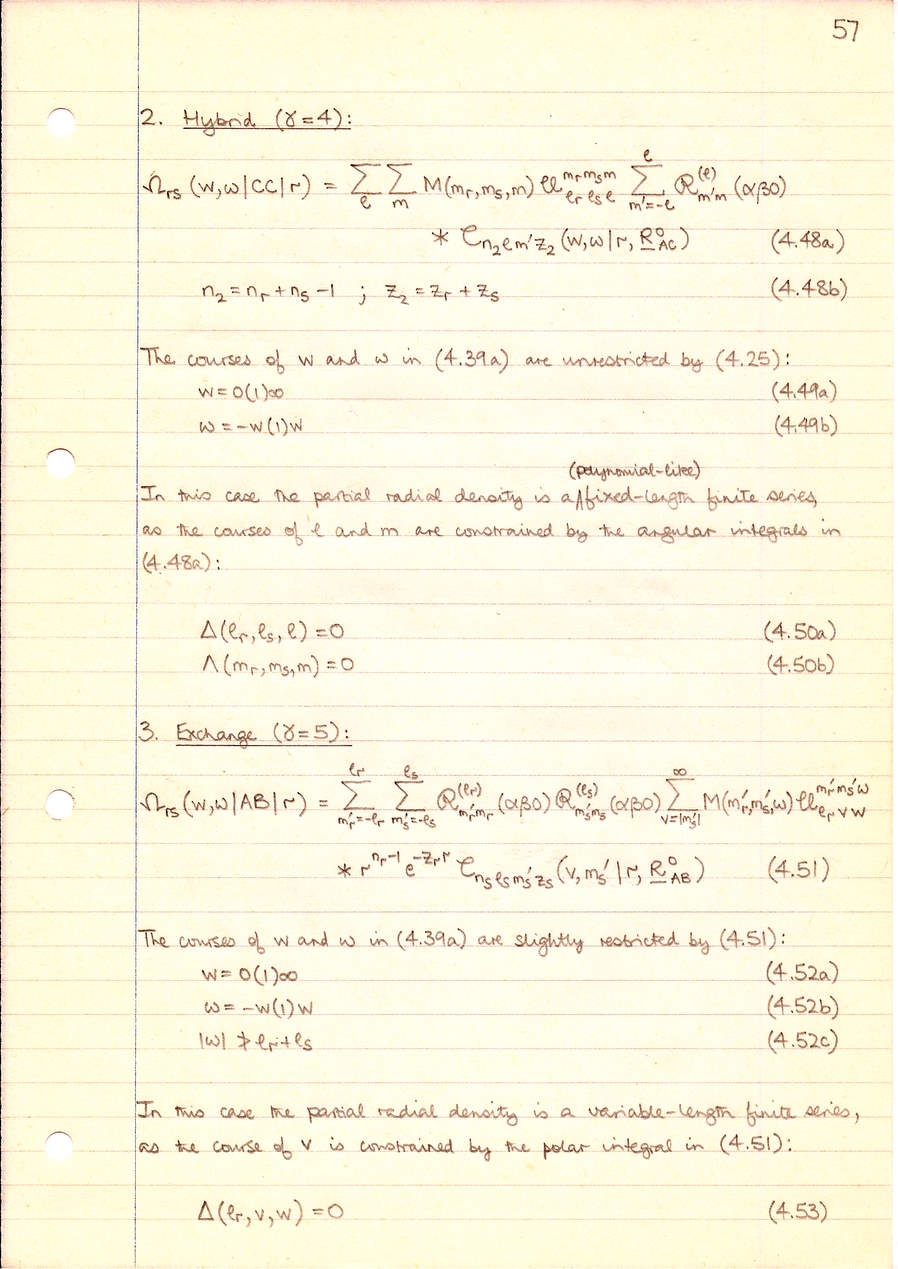 57
2. Hybrid (γ=4):
Ω_rs (w,ω|CC|r) = Σ_ℓ Σ_m M(m_r,m_s,m) 𝒰^{m_r m_s m}_{ℓ_r ℓ_s ℓ} Σ_{m'=-ℓ}^{ℓ} ℛ^{(ℓ)}_{m'm} (αβ0)
* 𝒞_{n_2 ℓ m' z_2} (w,ω|r, R°_AC) (4.48a)
n_2 = n_r + n_s -1 ; z_2 = z_r + z_s (4.48b)
The courses of w and ω in (4.39a) are unrestricted by (4.25):
w = 0(1)∞ (4.49a)
ω = -w(1)w (4.49b)
(polynomial-like)
In this case the partial radial density is a ∧ fixed-length finite series,
as the courses of ℓ and m are constrained by the angular integrals in
(4.48a):
Δ(ℓ_r, ℓ_s, ℓ) = 0 (4.50a)
Λ(m_r, m_s, m) = 0 (4.50b)
3. Exchange (γ=5):
Ω_rs (w,ω|AB|r) = Σ_{m_r'=-ℓ_r}^{ℓ_r} Σ_{m_s'=-ℓ_s}^{ℓ_s} ℛ^{(ℓ_r)}_{m_r'm_r} (αβ0) ℛ^{(ℓ_s)}_{m_s'm_s} (αβ0) Σ_{v=|m_s'|}^{∞} M(m_r',m_s',ω) 𝒰^{m_r' m_s' ω}_{ℓ_r v w}
* r^{n_r-1} e^{-z_r r} 𝒞_{n_s ℓ_s m_s' z_s} (v, m_s' | r, R°_AB) (4.51)
The courses of w and ω in (4.39a) are slightly restricted by (4.51):
w = 0(1)∞ (4.52a)
ω = -w(1)w (4.52b)
|ω| ≯ ℓ_r + ℓ_s (4.52c)
In this case the partial radial density is a variable-length finite series,
as the course of v is constrained by the polar integral in (4.51):
Δ(ℓ_r, v, w) = 0 (4.53)